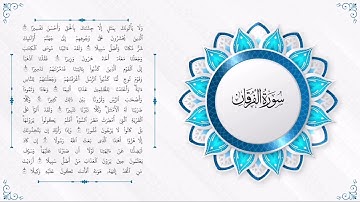 وَلَا يَأْتُونَكَ بِمَثَلٍ إِلَّا جِئْنَٰكَ بِٱلْحَقِّ وَأَحْسَنَ تَفْسِيرًا
ٱلَّذِينَ يُحْشَرُونَ عَلَىٰ وُجُوهِهِمْ إِلَىٰ جَهَنَّمَ أُو۟لَٰٓئِكَ
شَرٌّ مَّكَانًا وَأَضَلُّ سَبِيلًا وَلَقَدْ ءَاتَيْنَا مُوسَى ٱلْكِتَٰبَ
وَجَعَلْنَا مَعَهُۥٓ أَخَاهُ هَٰرُونَ وَزِيرًا فَقُلْنَا ٱذْهَبَآ
إِلَى ٱلْقَوْمِ ٱلَّذِينَ كَذَّبُوا۟ بِـَٔايَٰتِنَا فَدَمَّرْنَٰهُمْ تَدْمِيرًا
وَقَوْمَ نُوحٍ لَّمَّا كَذَّبُوا۟ ٱلرُّسُلَ أَغْرَقْنَٰهُمْ وَجَعَلْنَٰهُمْ لِلنَّاسِ
ءَايَةً وَأَعْتَدْنَا لِلظَّٰلِمِينَ عَذَابًا أَلِيمًا وَعَادًا وَثَمُودَا۟
وَأَصْحَٰبَ ٱلرَّسِّ وَقُرُونًۢا بَيْنَ ذَٰلِكَ كَثِيرًا وَكُلًّا ضَرَبْنَا لَهُ
ٱلْأَمْثَٰلَ وَكُلًّا تَبَّرْنَا تَتْبِيرًا وَلَقَدْ أَتَوْا۟ عَلَى ٱلْقَرْيَةِ ٱلَّتِىٓ
أُمْطِرَتْ مَطَرَ ٱلسَّوْءِ أَفَلَمْ يَكُونُوا۟ يَرَوْنَهَا بَلْ كَانُوا۟
لَا يَرْجُونَ نُشُورًا وَإِذَا رَأَوْكَ إِن يَتَّخِذُونَكَ
إِلَّا هُزُوًا أَهَٰذَا ٱلَّذِى بَعَثَ ٱللَّهُ رَسُولًا إِن كَادَ
لَيُضِلُّنَا عَنْ ءَالِهَتِنَا لَوْلَآ أَن صَبَرْنَا عَلَيْهَا وَسَوْفَ
يَعْلَمُونَ حِينَ يَرَوْنَ ٱلْعَذَابَ مَنْ أَضَلُّ سَبِيلًا
أَرَءَيْتَ مَنِ ٱتَّخَذَ إِلَٰهَهُۥ هَوَىٰهُ أَفَأَنتَ تَكُونُ عَلَيْهِ وَكِيلًا
سُورَةُ الْفُرْقَانِ